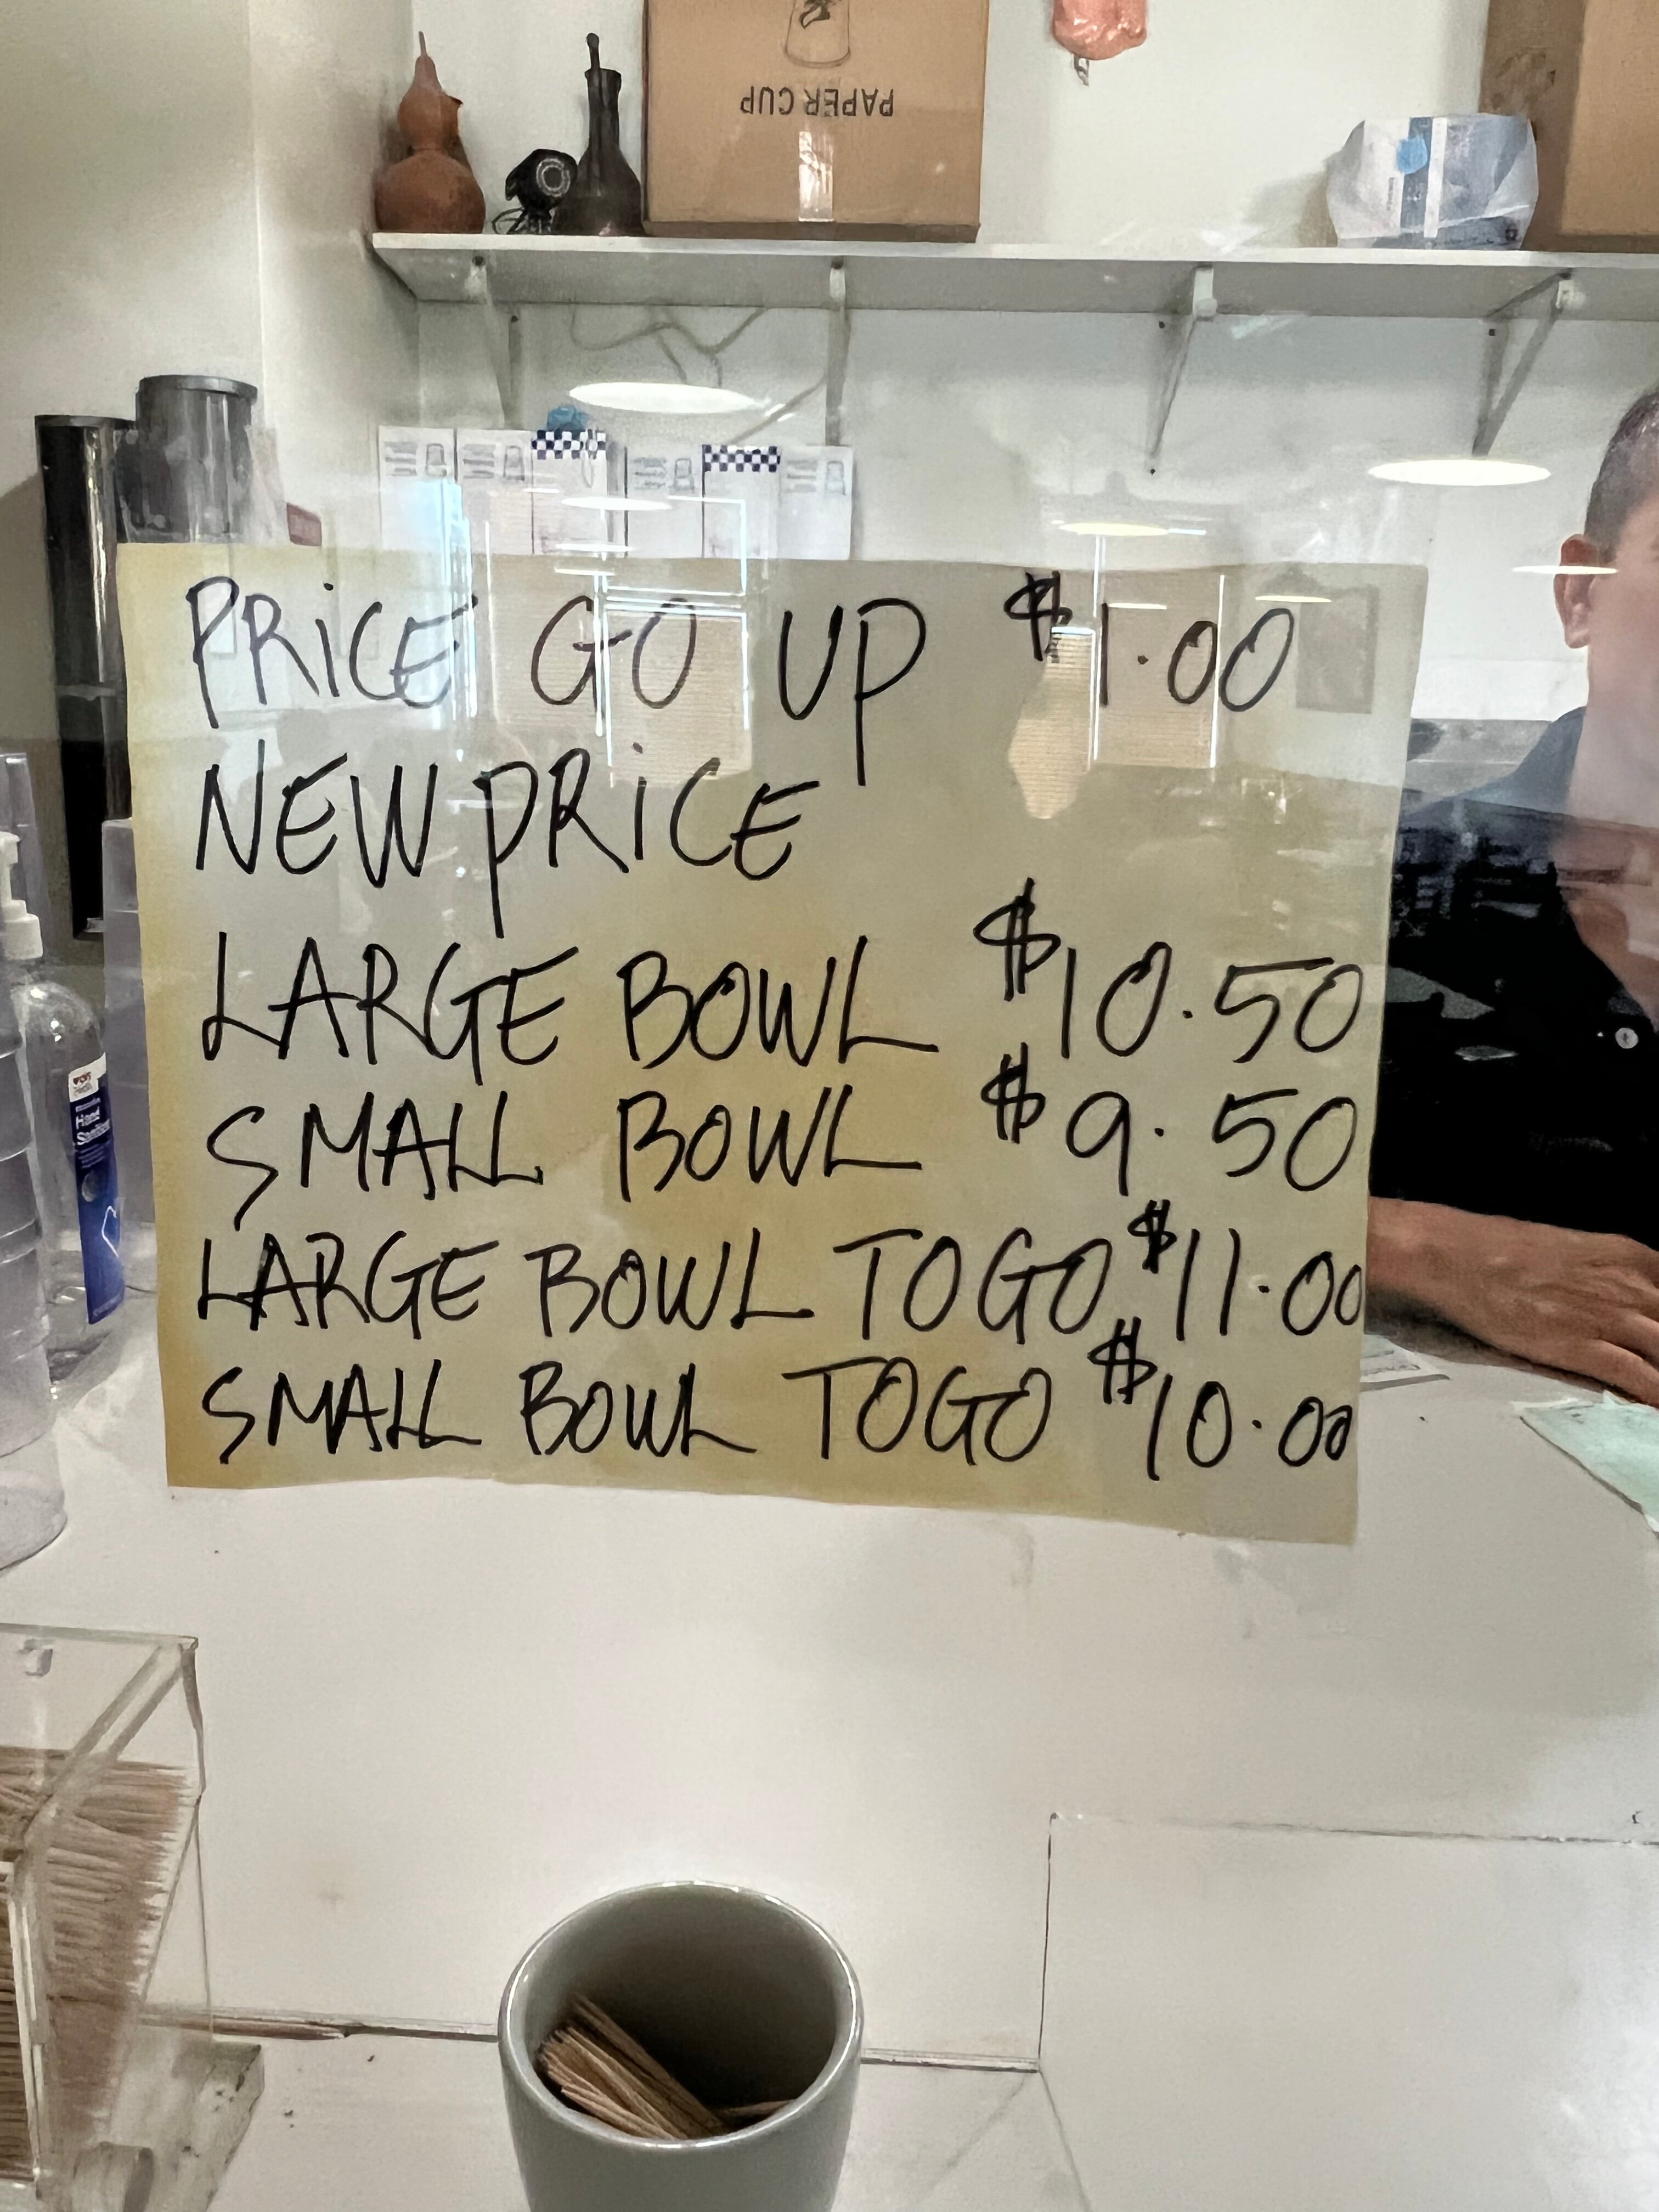 PAPER CUP
PRiCE GO UP $1.00
NEW PRiCE
LARGE BOWL $10.50
SMALL BOWL $9.50
LARGE BOWL TOGO $11.00
SMALL BOWL TOGO $10.00
Hand